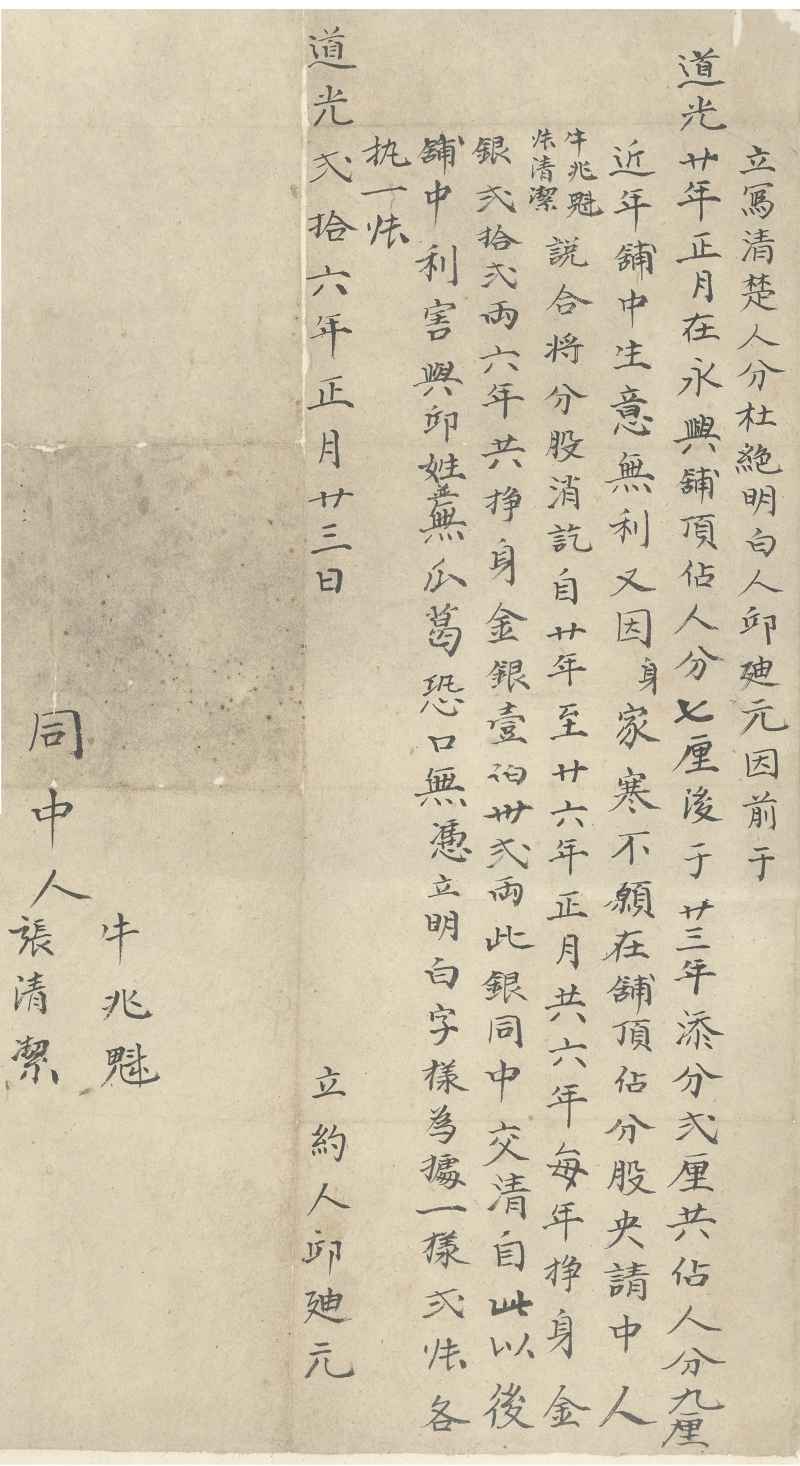 立寫清楚人分杜絶明白人邱廸元因前于
道光廿年正月在永興舖頂佔人分七厘後于廿三年添分弍厘共佔人分九厘
近年舖中生意無利又因身家寒不願在舖頂佔分股央請中人
牛兆魁
張清潔
説合將分股消訖自廿年至廿六年正月共六年每年挣身金
銀弍拾弍両六年共挣身金銀壹伯卅弍両此銀同中交清自此以後
舖中利害與邱姓並無瓜葛恐口無憑立明白字樣為據一樣弍張各
执一张
道光弍拾六年正月廿三日
立約人邱廸元
同中人
牛兆魁
張清潔